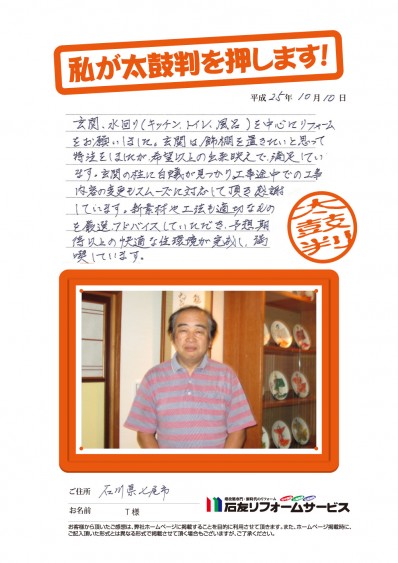 私が太鼓判を押します!
平成25年10月10日
玄関、水回り(キッチン、トイレ、風呂)を中心にリフォーム
をお願いしました。玄関は、飾棚を置きたいと思って
特注をしましたが、希望以上の出来映えで、満足してい
ます。玄関の柱に白蟻が見つかり、工事途中での工事
内容の変更もスムーズに対応して頂き感謝
しています。新素材や工法も適切なもの
を厳選、アドバイスしていただき、予想、期
待以上の快適な住環境が完成し、満
喫しています。
太鼓判
ご住所 石川県七尾市
お名前 T様
増改築専門・創科氏のリフォーム
石友リフォームサービス
お客様から頂いたご感想は、弊社ホームページに掲載することを目的に利用させて頂きます。また、ホームページ掲載時に、
ご記入頂いた形式とは異なる形式で掲載させて頂く場合もございますが、ご了承ください。